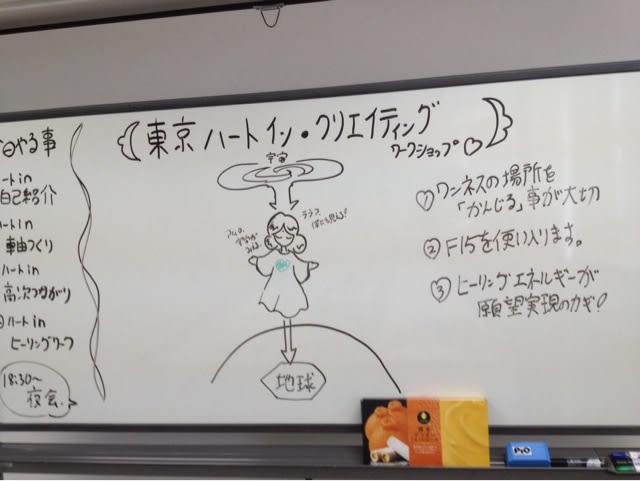 東京ハートイン・クリエイティング
ワークショップ♡
日やる事
ートin
自己紹介
ートin
軸づくり
ハートin
高次つながり
ハートin
ヒーリングワーク
18:30〜
夜会
宇宙
地球
① ワンネスの場所を
「かんじる」事が大切
② F15を使い入ります。
③ ヒーリングエネルギーが
願望実現のカギ!
PiO